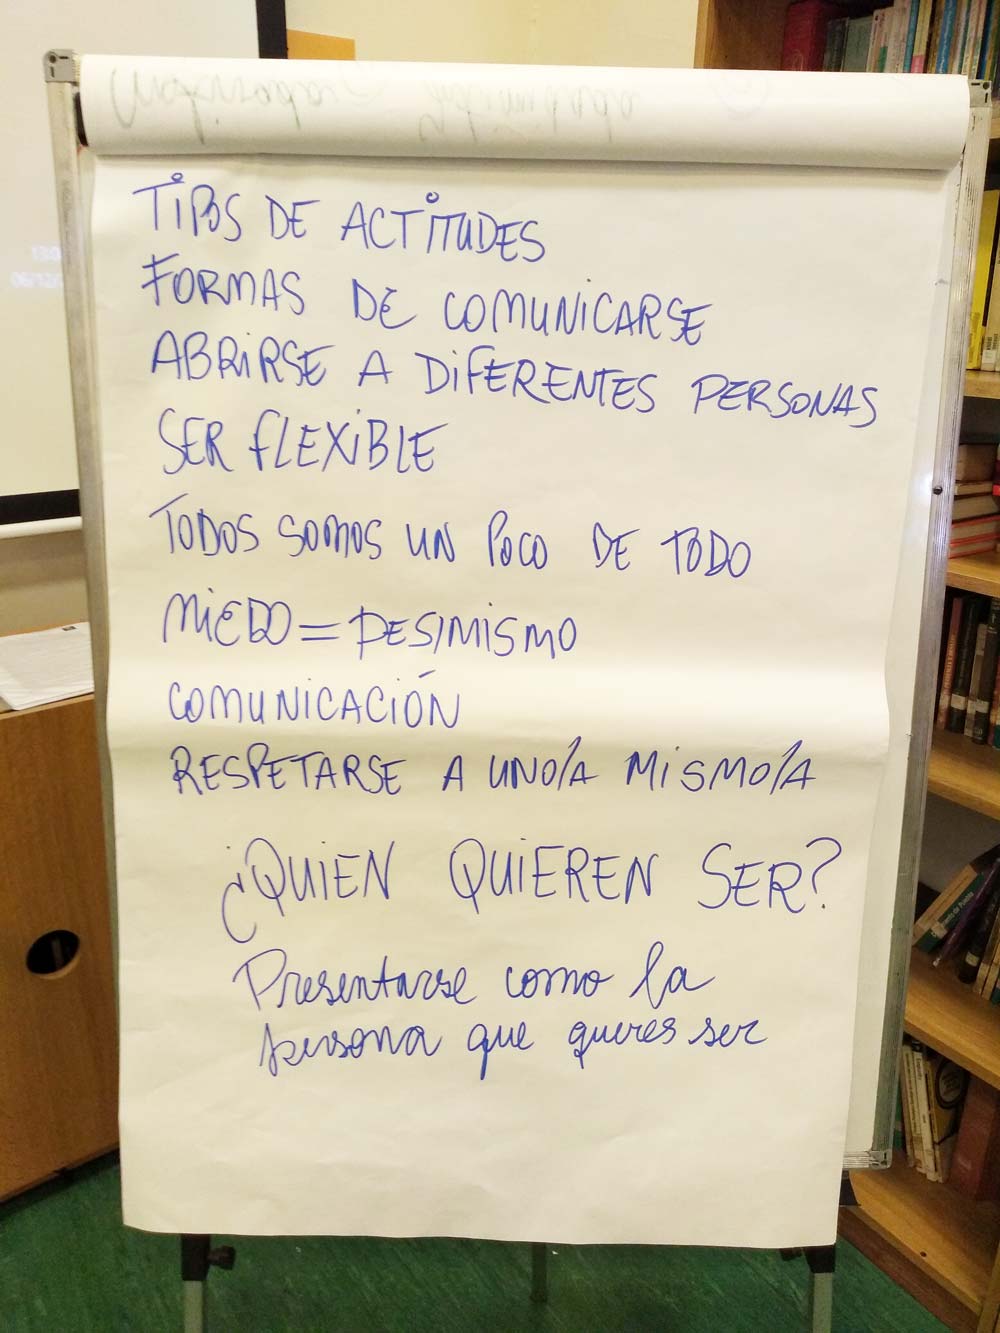 TIPOS DE ACTITUDES
FORMAS DE COMUNICARSE
ABRIRSE A DIFERENTES PERSONAS
SER FLEXIBLE
TODOS SOMOS UN POCO DE TODO
MIEDO = PESIMISMO
COMUNICACIÓN
RESPETARSE A UNO/A MISMO/A
¿QUIEN QUIEREN SER?
Presentarse como la
persona que queres ser